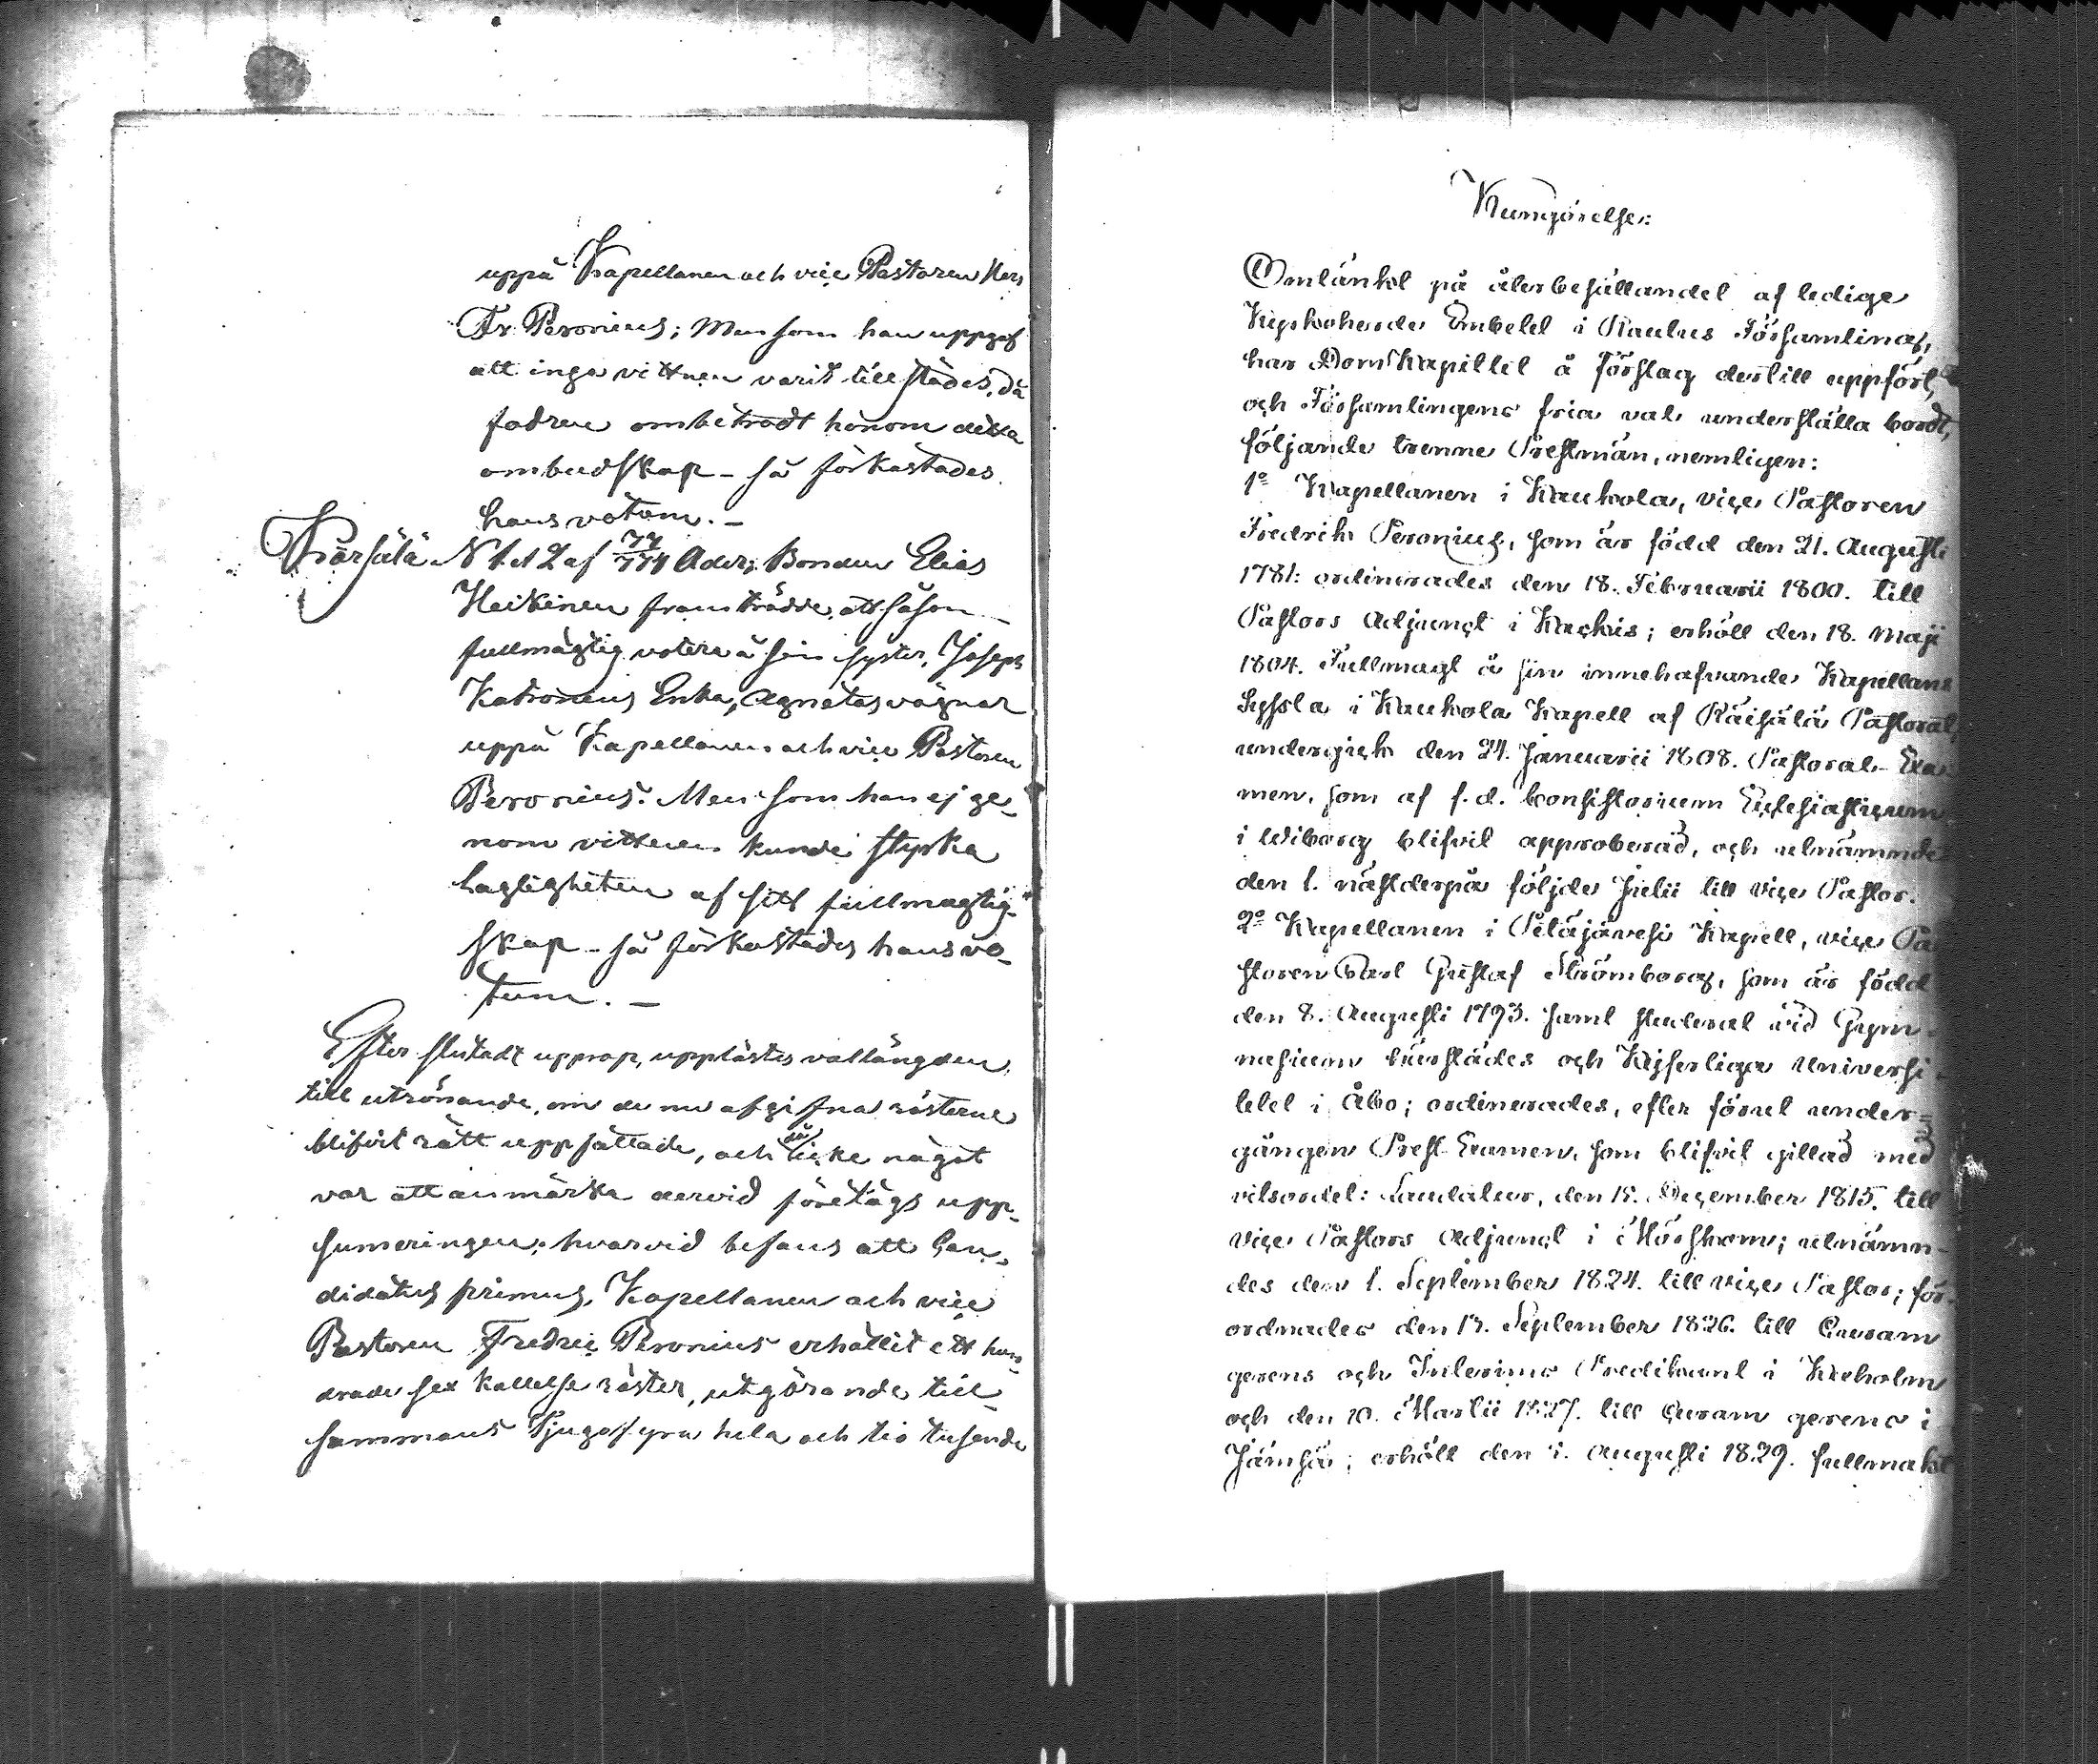 uppå Kapellanen och vice Pastoren Herr
Fr. Peronius; Men som han uppgaf
att inga vittnen varit tillstädes, då
fadren ombetrodt honom detta
ombudskap – så förkastades
hans votum. –
Kärsälä N 1 et 2 af Ader; Bonden Elias
Heikinen framträdde, att såsom
fullmägtig votera å sin syster, Joseph
Katronens Enka, Agnetas vägnar
uppå Kapellanen och vice Pastoren
Peronius. Men som han ej ge-
nom vittnen kunde styrka
lagligheten af sitt fullmagtig-
skap – så förkastades hans vo-
tum. –
Efter slutadt upprop, upplästes vallängden
till utrönande, om de nu afgifna rösterne
blifvit rätt uppfattade, och då icke något
var att anmärka dervid företogs upp-
sumeringen; hvarvid befans att Can-
didatus primus, Kapellanen och vice
Pastoren Fredric Peronius erhållit ett hun-
drade sex kallelse röster, utgörande till-
sammans Tjugofyra hela och tio tusende
Kungörelse:
Omtänkt på återbesättandet af lediga
Kyrkoherde Embetet i Raulus Församling,
har DomKapitlet å förslag dertill uppfört,
och Församlingens fria val underställa bordt,
följande trenne Prestmän, nemligen:
1º Kapellanen i Kaukola, vice Pastoren
Fredrik Peronius, som är född den 21. Augusti
1781: ordinerades den 18. Februarii 1800. till
Pastors Adjunct i Kackis; erhöll den 18. Maji
1804. Fullmagt å sin innehafvande Kapellans
Syssla i Kaukola Kapell af Räisälä Pastorat,
undergick den 24. Januarii 1808. Pastoral-Exa-
men, som af f.d. Consistorium Ecclesiasticum
i Wiborg blifvit approberad, och utnämndes
den 1. nästderpå följde Julii till vice Pastor.
2º Kapellanen i Peläjärvesi Kapell, vice Pa-
storen Carl Gustaf Strömborg, som är född
den 8. Augusti 1793. samt studerat vid Gym-
nasium härstädes och Kejserliga Universi-
tetet i Åbo; ordinerades, efter förut under-
gången Prest-Examen, som blifvit gillad med
vitsordet: Laudatur, den 15. December 1815. till
vice Pastors Adjunct i Mörskom; utnämn-
des den 1. September 1824. till vice Pastor; för-
ordnades den 13. September 1826. till Curam
gerens och Interims Predikant i Kexholm
och den 10. Martii 1827. till Curam gerens i
Jämsä; erhöll den 1. Augusti 1829. fullmakt